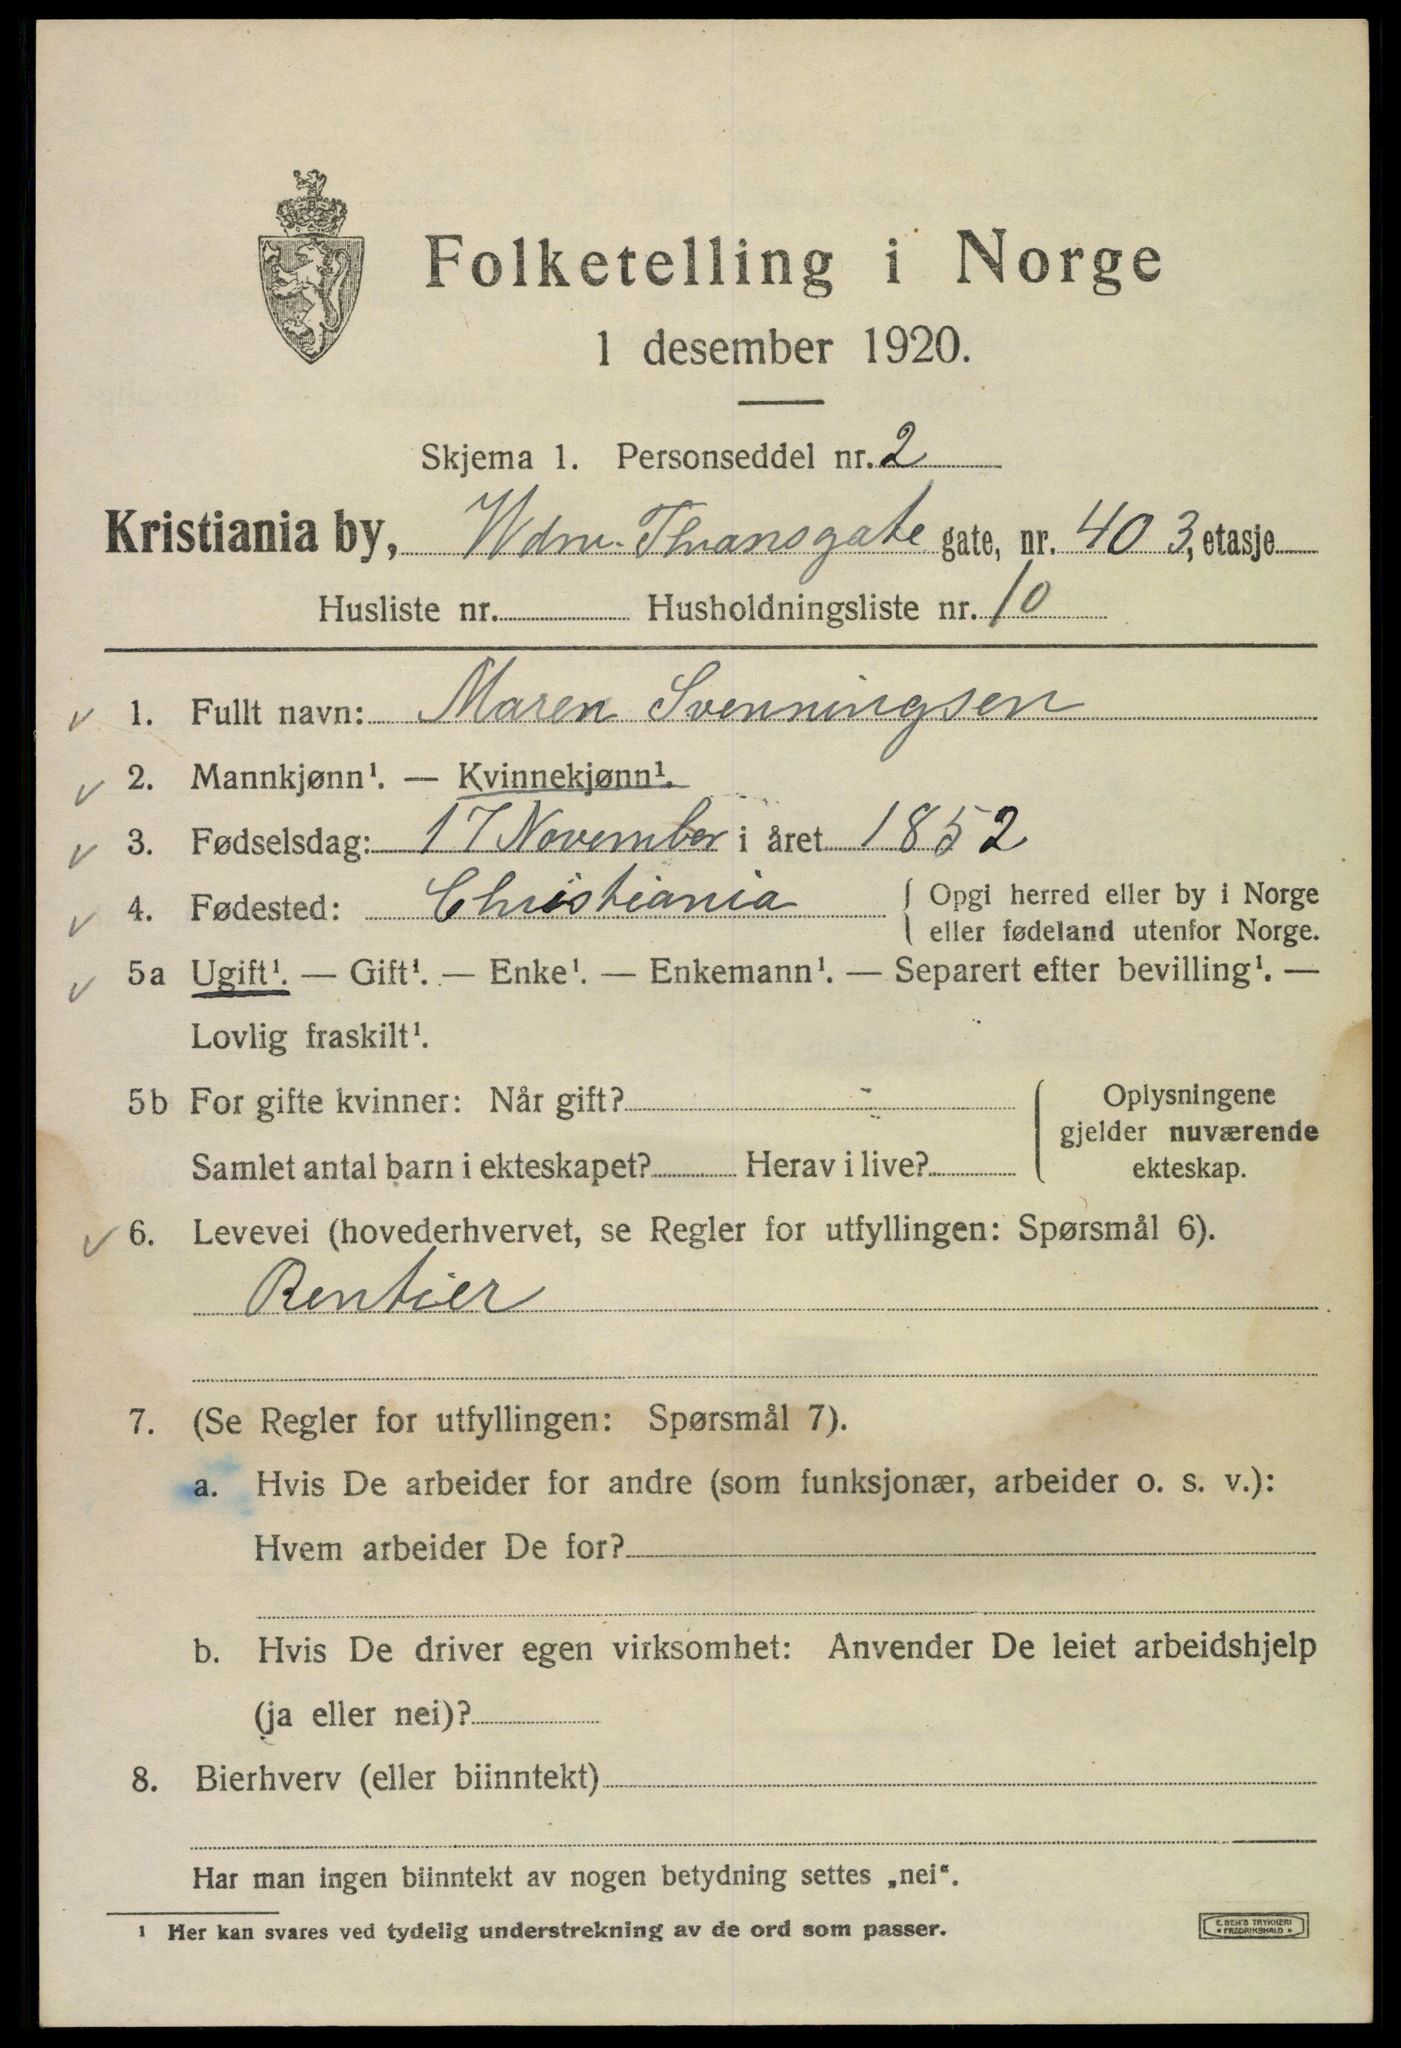 Folketelling i Norge
1 desember 1920.
Skjema 1. Personseddel nr. 2
Kristiania by, Wdm. Thransgate gate, nr. 40 3, etasje
Husliste nr. Husholdningsliste nr. 10
1. Fullt navn: Maren Svenningsen
2. Mannkjønn¹. — Kvinnekjønn¹.
3. Fødselsdag: 17 November i året 1852
4. Fødested: Christiania { Opgi herred eller by i Norge
eller fødeland utenfor Norge.
5a Ugift¹. — Gift¹. — Enke¹. — Enkemann¹. — Separert efter bevilling¹. —
Lovlig fraskilt¹.
5b For gifte kvinner: Når gift?
Samlet antal barn i ekteskapet? Herav i live?
Oplysningene
gjelder nuværende
ekteskap.
6. Levevei (hovederhvervet, se Regler for utfyllingen: Spørsmål 6).
Rentier
7. (Se Regler for utfyllingen: Spørsmål 7).
a. Hvis De arbeider for andre (som funksjonær, arbeider o. s. v.):
Hvem arbeider De for?
b. Hvis De driver egen virksomhet: Anvender De leiet arbeidshjelp
(ja eller nei)?
8. Bierhverv (eller biinntekt)
Har man ingen biinntekt av nogen betydning settes „nei“.
¹ Her kan svares ved tydelig understrekning av de ord som passer.
E. SEM'S TRYKKERI
FREDRIKSHALD